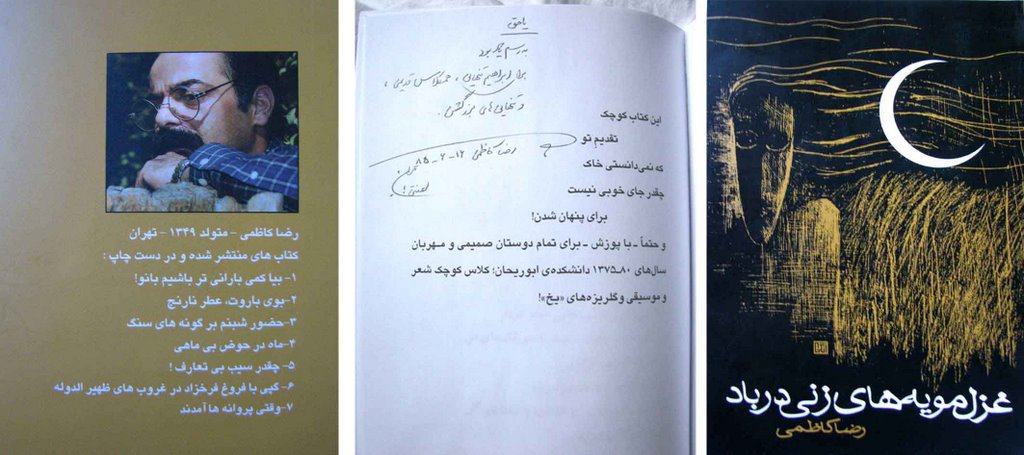 رضا کاظمی - متولد ۱۳۴۹ - تهران
کتاب های منتشر شده و در دست چاپ :
۱- بیا کمی بارانی تر باشیم بانو!
۲-بوی باروت، عطر نارنج
۳-حضور شبنم بر گونه های سنگ
۴-ماه در حوض بی ماهی
۵- چقدر سیب بی تعارف !
۶- گپی با فروغ فرخزاد در غروب های ظهیر الدوله
۷-وقتی پروانه ها آمدند
یا حق
به رسم یادبود
برای ابراهیم تنهایی ، همکلاس قدیمی ،
و تنهایی های بزرگش .
رضا کاظمی ۱۲-۶-۸۵
تهران
این کتاب کوچک
تقدیم تو
که نمی‌دانستی خاک
چقدر جای خوبی نیست
برای پنهان شدن!
و حتماً ـ با پوزش ـ برای تمام دوستان صمیمی و مهربان
سال‌های ۸۰ـ۱۳۷۵ دانشکده‌ی ابوریحان؛ کلاس کوچک شعر
و موسیقی و گلریزه‌های «یخ»!
غزل‌مویه‌های زنی در باد
رضا کاظمی